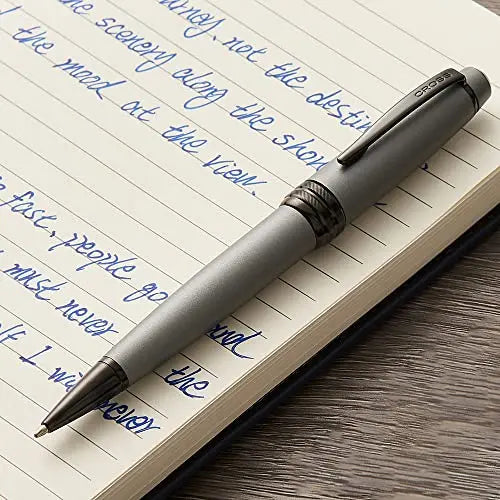 not the destin
the scenery along the shor
the mood at the view.
fast, people go
must never and
I the
never
CROSS